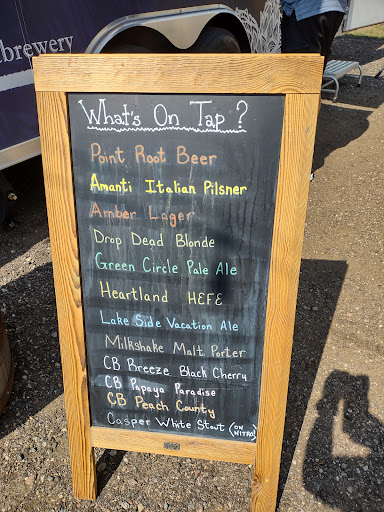 brewery
What's On Tap?
Point Root Beer
Amanti Italian Pilsner
Amber Lager
Drop Dead Blonde
Green Circle Pale Ale
Heartland HEFE
Lake Side Vacation Ale
Milkshake Malt Porter
CB Breeze Black Cherry
CB Papaya Paradise
CB Peach County
Casper White Stout (ON NITRO)